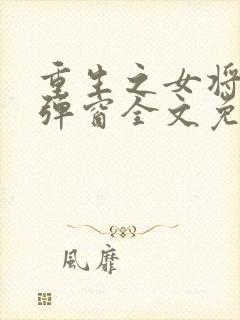 重生之女将
弹窗全文免
風靡